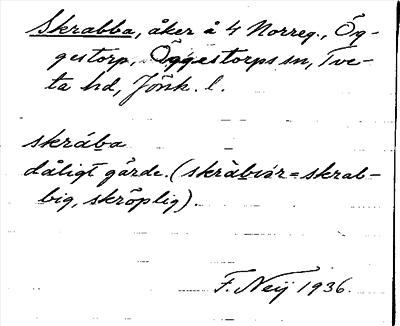 Skrabba, åker å 4 Norreg., Ög-
gestorp, Öggestorps sn, Tve-
ta hd, Jönk. l.
skrába
dåligt gärde. (skràbiár = skrab-
big, skröplig).
F. Neij 1936.